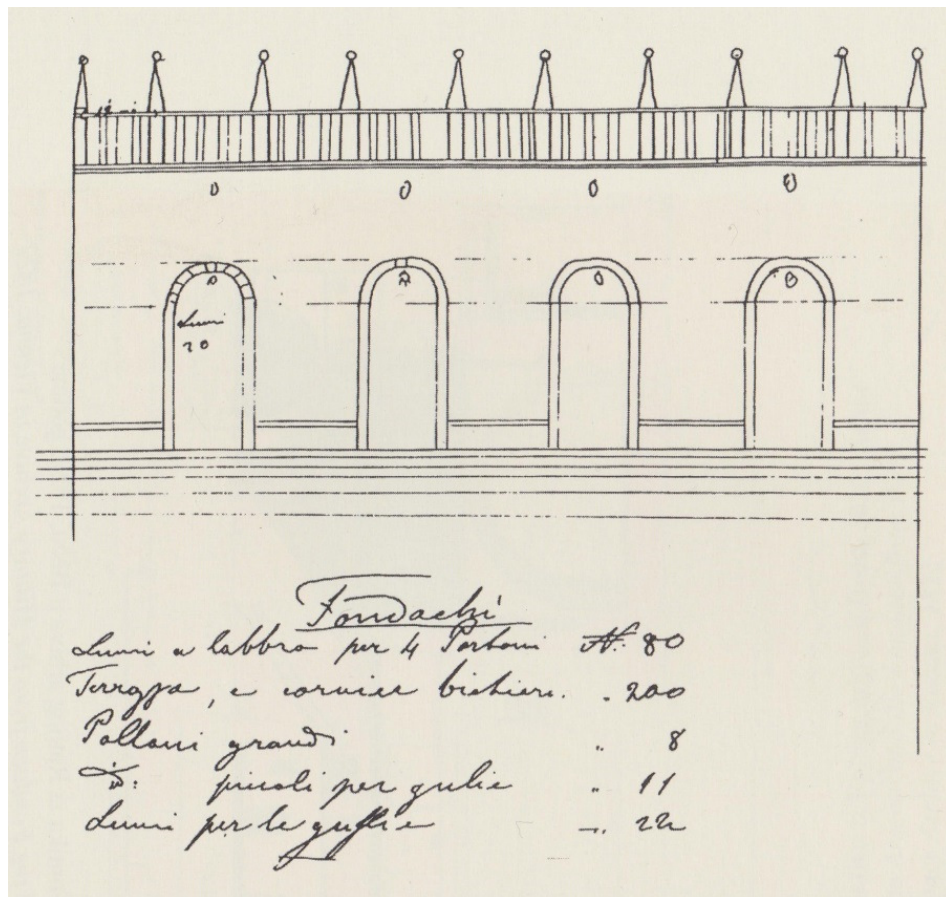 Lumi
20
Fondachi
Lumi a labbro per 4 Portoni N. 80
Terrazza, e cornice bichieri. " 200
Palloni grandi " 8
id: piccoli per gulie " 11
Lumi per le guglie " 22